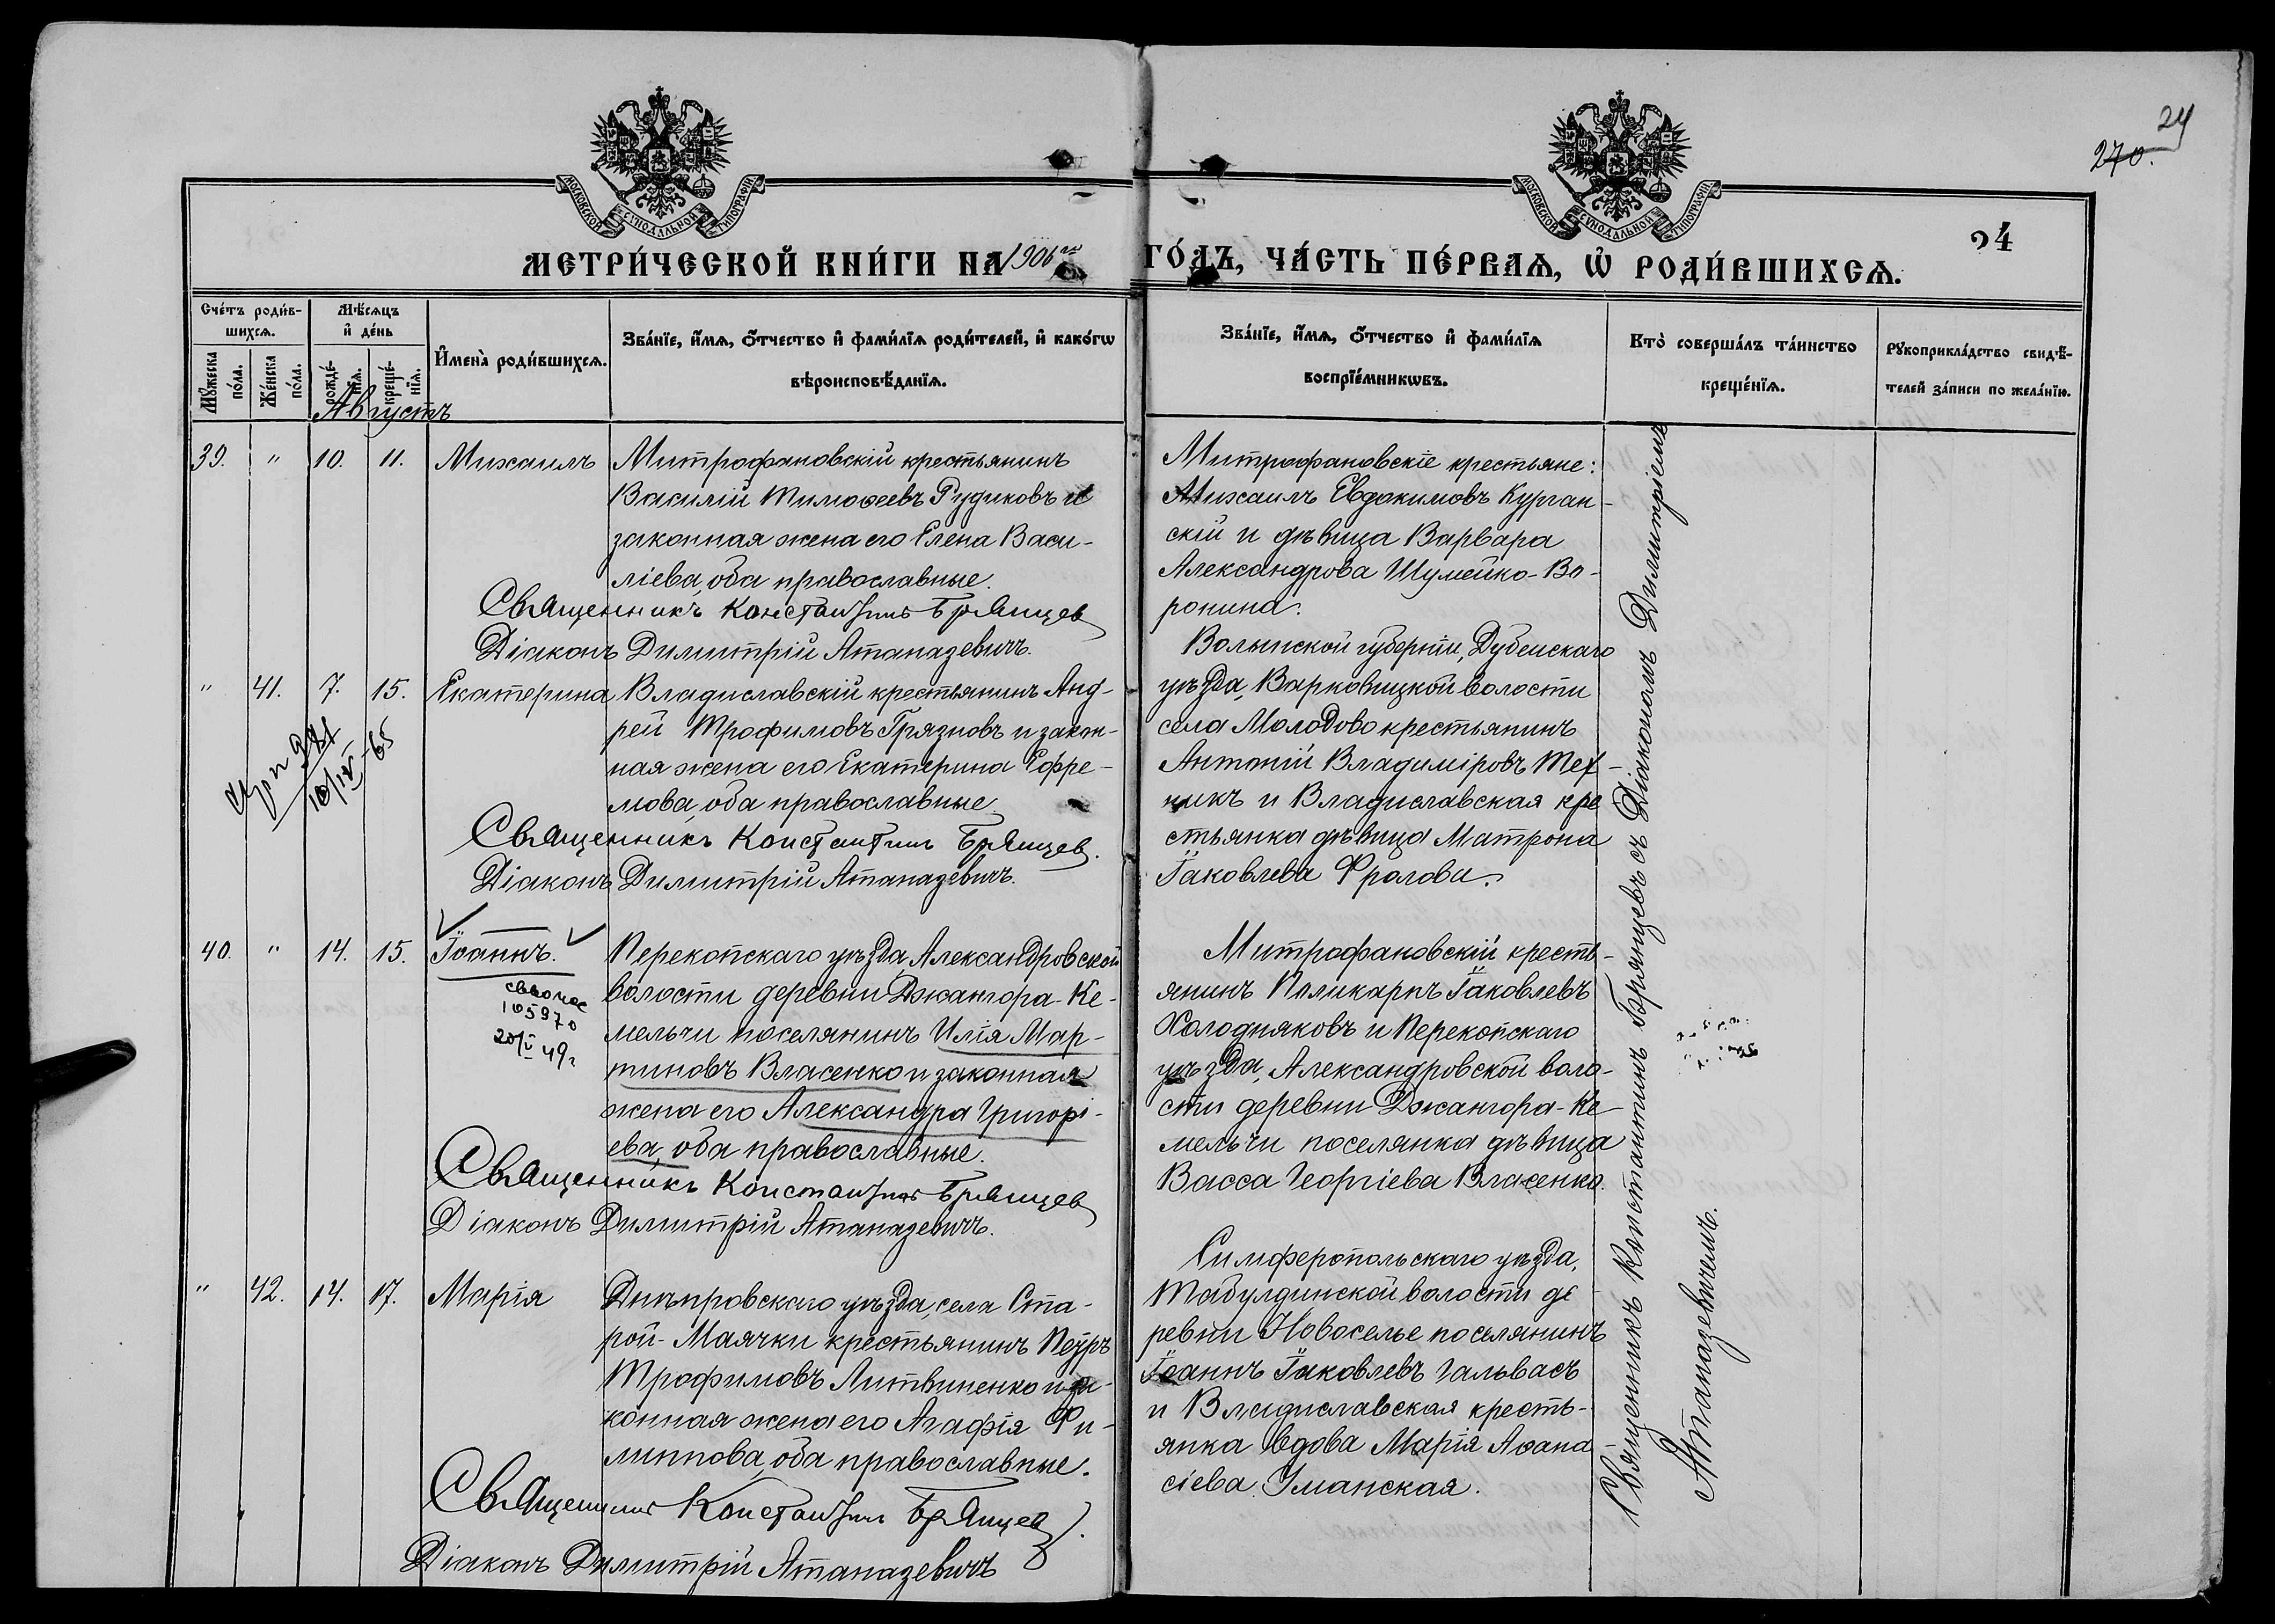 24
270.
МОСКОВСКОЙ СѴНОДАЛЬНОЙ ТИПОГРАФІИ
МОСКОВСКОЙ СѴНОДАЛЬНОЙ ТИПОГРАФІИ
24
МЕТРИ́ЧЕСКОЙ КНИ́ГИ НА 1906 ГО́ДЪ, ЧА́СТЬ ПЕ́РВАѦ, Ѡ РОДИ́ВШИХСѦ.
Сче́тъ роди́в-
шихсѧ.
Мꙋ́жеска
по́ла.
Же́нска
по́ла.
Мѣ́сѧцъ
и де́нь
рожде́-
нїѧ.
креще́-
нїѧ.
Имена̀ роди́вшихсѧ.
Зва́нїе, и́мѧ, о́тчество и фами́лїѧ роди́телей, и како́гѡ
вѣроисповѣ́данїѧ.
Зва́нїе, и́мѧ, о́тчество и фами́лїѧ
воспрїе́мникѡвъ.
Кто̀ соверша́лъ та́инство
креще́нїѧ.
Рꙋкоприкла́дство свидѣ́-
телей за́писи по жела́нїю.
Августъ
39. " 10. 11. Михаилъ
Митрофановскій крестьянинъ
Василій Тимоѳеевъ Рудиковъ и
законная жена его Елена Васи-
ліева, оба православные.
Священникъ Константинъ Брянцев
Діаконъ Димитрій Атаназевичъ.
Митрофановскіе крестьяне:
Михаилъ Евдокимовъ Курган-
скій и дѣвица Варвара
Александрова Шумейко-Во-
ронина.
" 41. 7. 15. Екатерина
Владиславскій крестьянинъ Анд-
рей Трофимовъ Грязновъ и закон-
ная жена его Екатерина Ефре-
мова, оба православные
Священникъ Константинъ Брянцев.
Діаконъ Димитрій Атаназевичъ.
10/IV-65
Волынской губерніи, Дубенскаго
уѣзда, Варковицкой волости
села Молодово крестьянинъ
Антоній Владиміровъ
и Владиславская кре
стьянка дѣвица Матрона
Іаковлева Фролова.
40. " 14. 15. Іоаннъ.
105970
20/V 49г
Перекопскаго уѣзда Александровской
волости деревни Джангора-Ке-
мельчи поселянинъ Илія Мар-
тиновъ Власенко и законная
жена его Александра Григорі-
ева, оба православные.
Священникъ Константинъ Брянцев
Діаконъ Димитрій Атаназевичъ.
Митрофановскій кресть-
янинъ Поликарпъ Іаковлевъ
Холодняковъ и Перекопскаго
уѣзда, Александровской воло-
сти деревни Джангора-Ке-
мельчи поселянка дѣвица
Васса Георгіева Власенко.
" 42. 14. 17. Марія
Днѣпровскаго уѣзда, села Ста-
рой-Маячки крестьянинъ Петръ
Трофимовъ Литвиненко и за-
конная жена его Агафія Фи-
липпова, оба православные.
Священникъ Константинъ Брянцев.
Діаконъ Димитрій Атаназевичъ
Симферопольскаго уѣзда,
Табулдинской волости де
ревни Новоселье поселянинъ
Іоаннъ Іаковлевъ Гальвасъ
и Владиславская кресть-
янка вдова Марія Аѳана-
сіева Уманская.
Священникъ Константинъ Брянцевъ съ Діакономъ Димитріемъ
Атаназевичемъ.